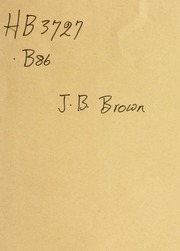 HB3727
.B86
J.B. Brown